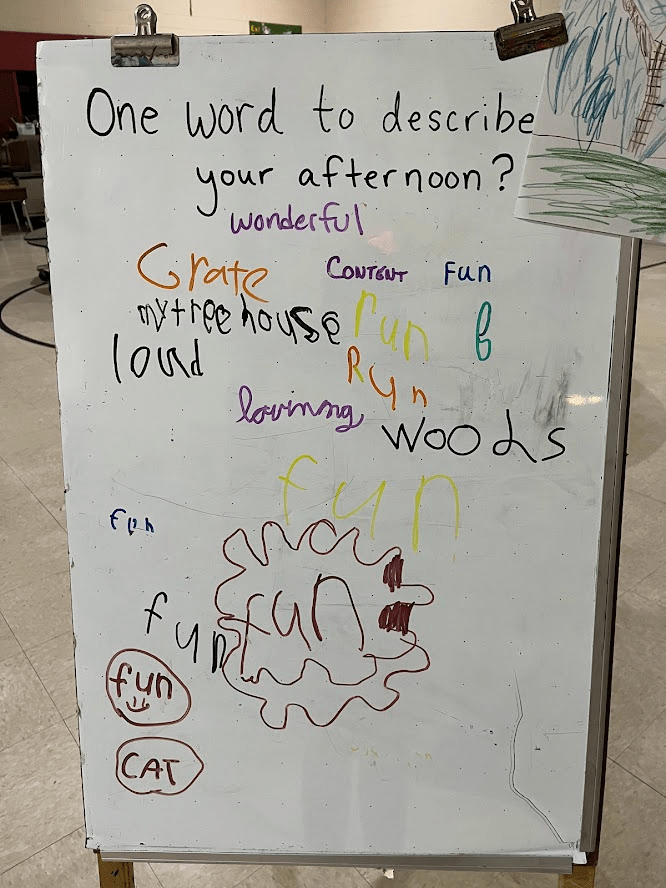 One word to describe
your afternoon?
wonderful
Grate CONTENT FUN
my tree house fun
loud Run
WOODS
fun
fun
fun fun
fun
CAT